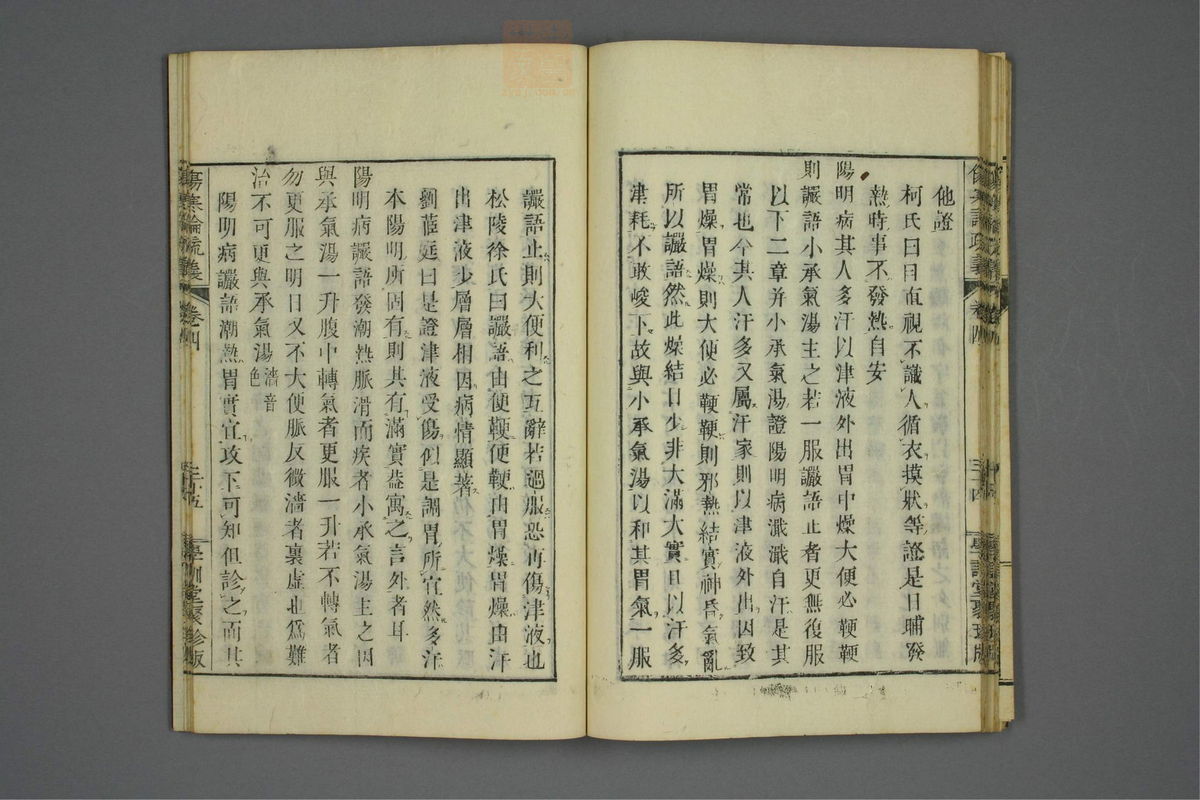 他證
柯氏曰曰直視不識人循衣摸牀等證是日晡發
熱時事不發熱自安
陽明病其人多汗以津液外出胃中燥大便必鞕鞕
則讝語小承氣湯主之若一服讝語止者更無復服
以下二章并小承氣湯證陽明病濈濈自汗是其
常也今其人汗多又屬汗家則以津液外出因致
胃燥胃燥則大便必鞕鞕則邪熱結實神昏氣亂
所以讝語然此燥結日少非大滿大實且以汗多
津耗不敢峻下故與小承氣湯以和其胃氣一服
讝語止則大便利之互辭若過服恐再傷津液也
松陵徐氏曰讝語由便鞕便鞕由胃燥胃燥由汗
出津液少層層相因病情顯著
劉茝庭曰是證津液受傷似是調胃所宜然多汗
本陽明所固有則其有滿實蓋寓之言外者耳
陽明病讝語發潮熱脈滑而疾者小承氣湯主之因
與承氣湯一升腹中轉氣者更服一升若不轉氣者
勿更服之明日又不大便脈反微濇者裏虛也爲難
治不可更與承氣湯濇音色
陽明病讝語潮熱胃實宜攻下可知但診之而其
傷寒論疏義
卷四
三十五
學訓堂聚珍版